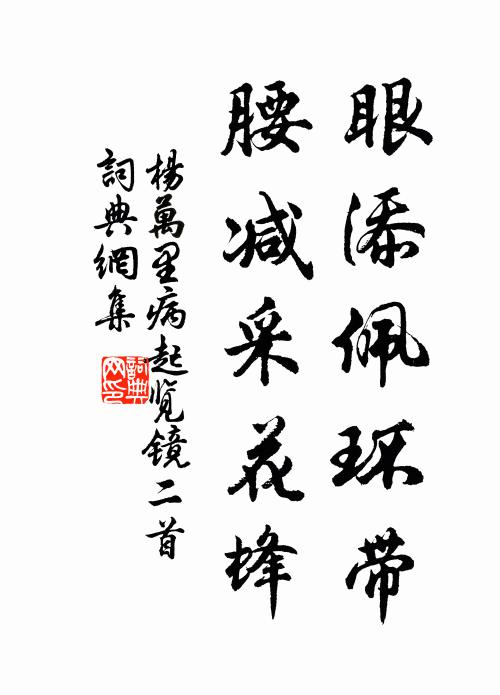 眼添佩环带
腰减采花蜂
杨萬里病起览镜二首
詞典網集
詞典網印